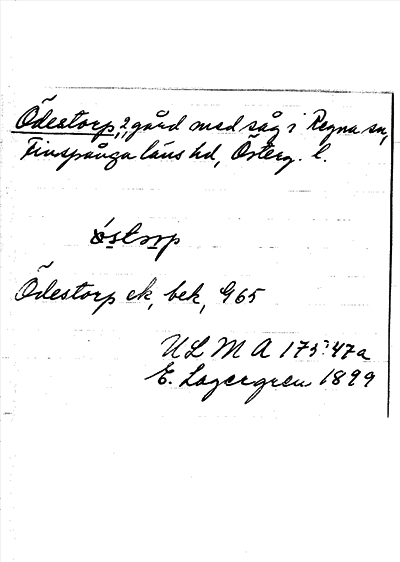 Ödestorp, 2, gård med såg i Regna sn,
Finspånga läns hd, Österg. l.
östorp
Ödestorp ek, bek, G65
ULMA 175:47a
E. Lagergren 1899